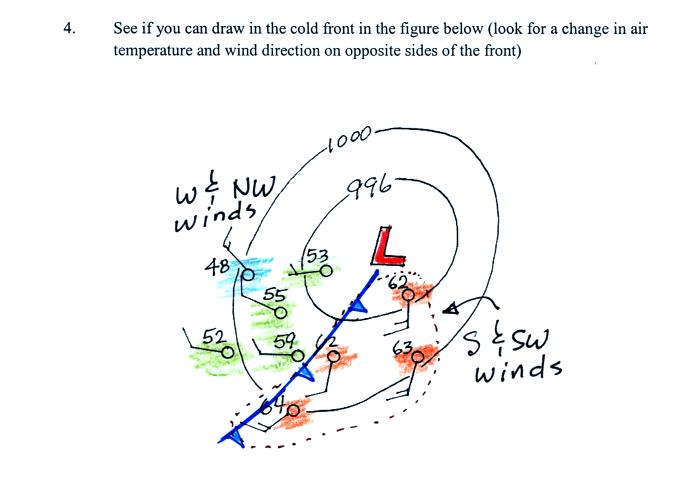 4. See if you can draw in the cold front in the figure below (look for a change in air
temperature and wind direction on opposite sides of the front)
1000
W & NW
winds
996
L
53
48
62
55
52
59
62
63
S & SW
winds
64